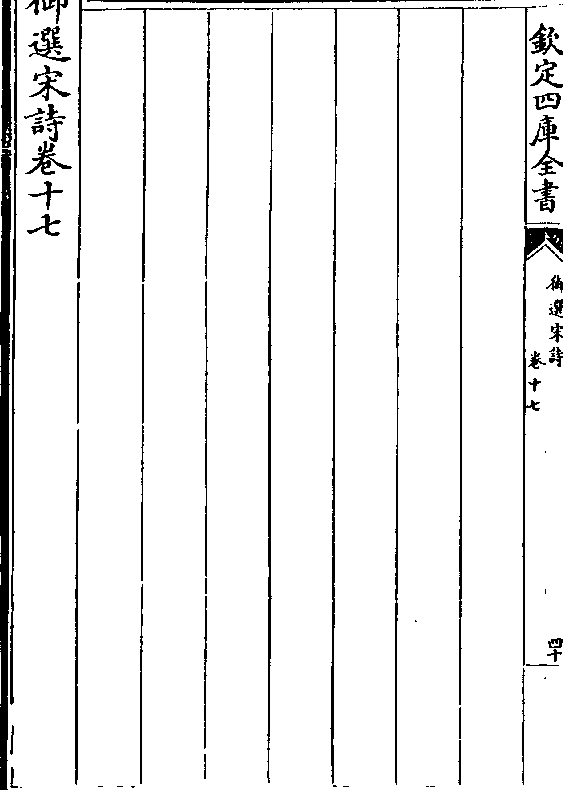 欽定四庫全書
御選宋詩
卷十七
四十
御選宋詩卷十七